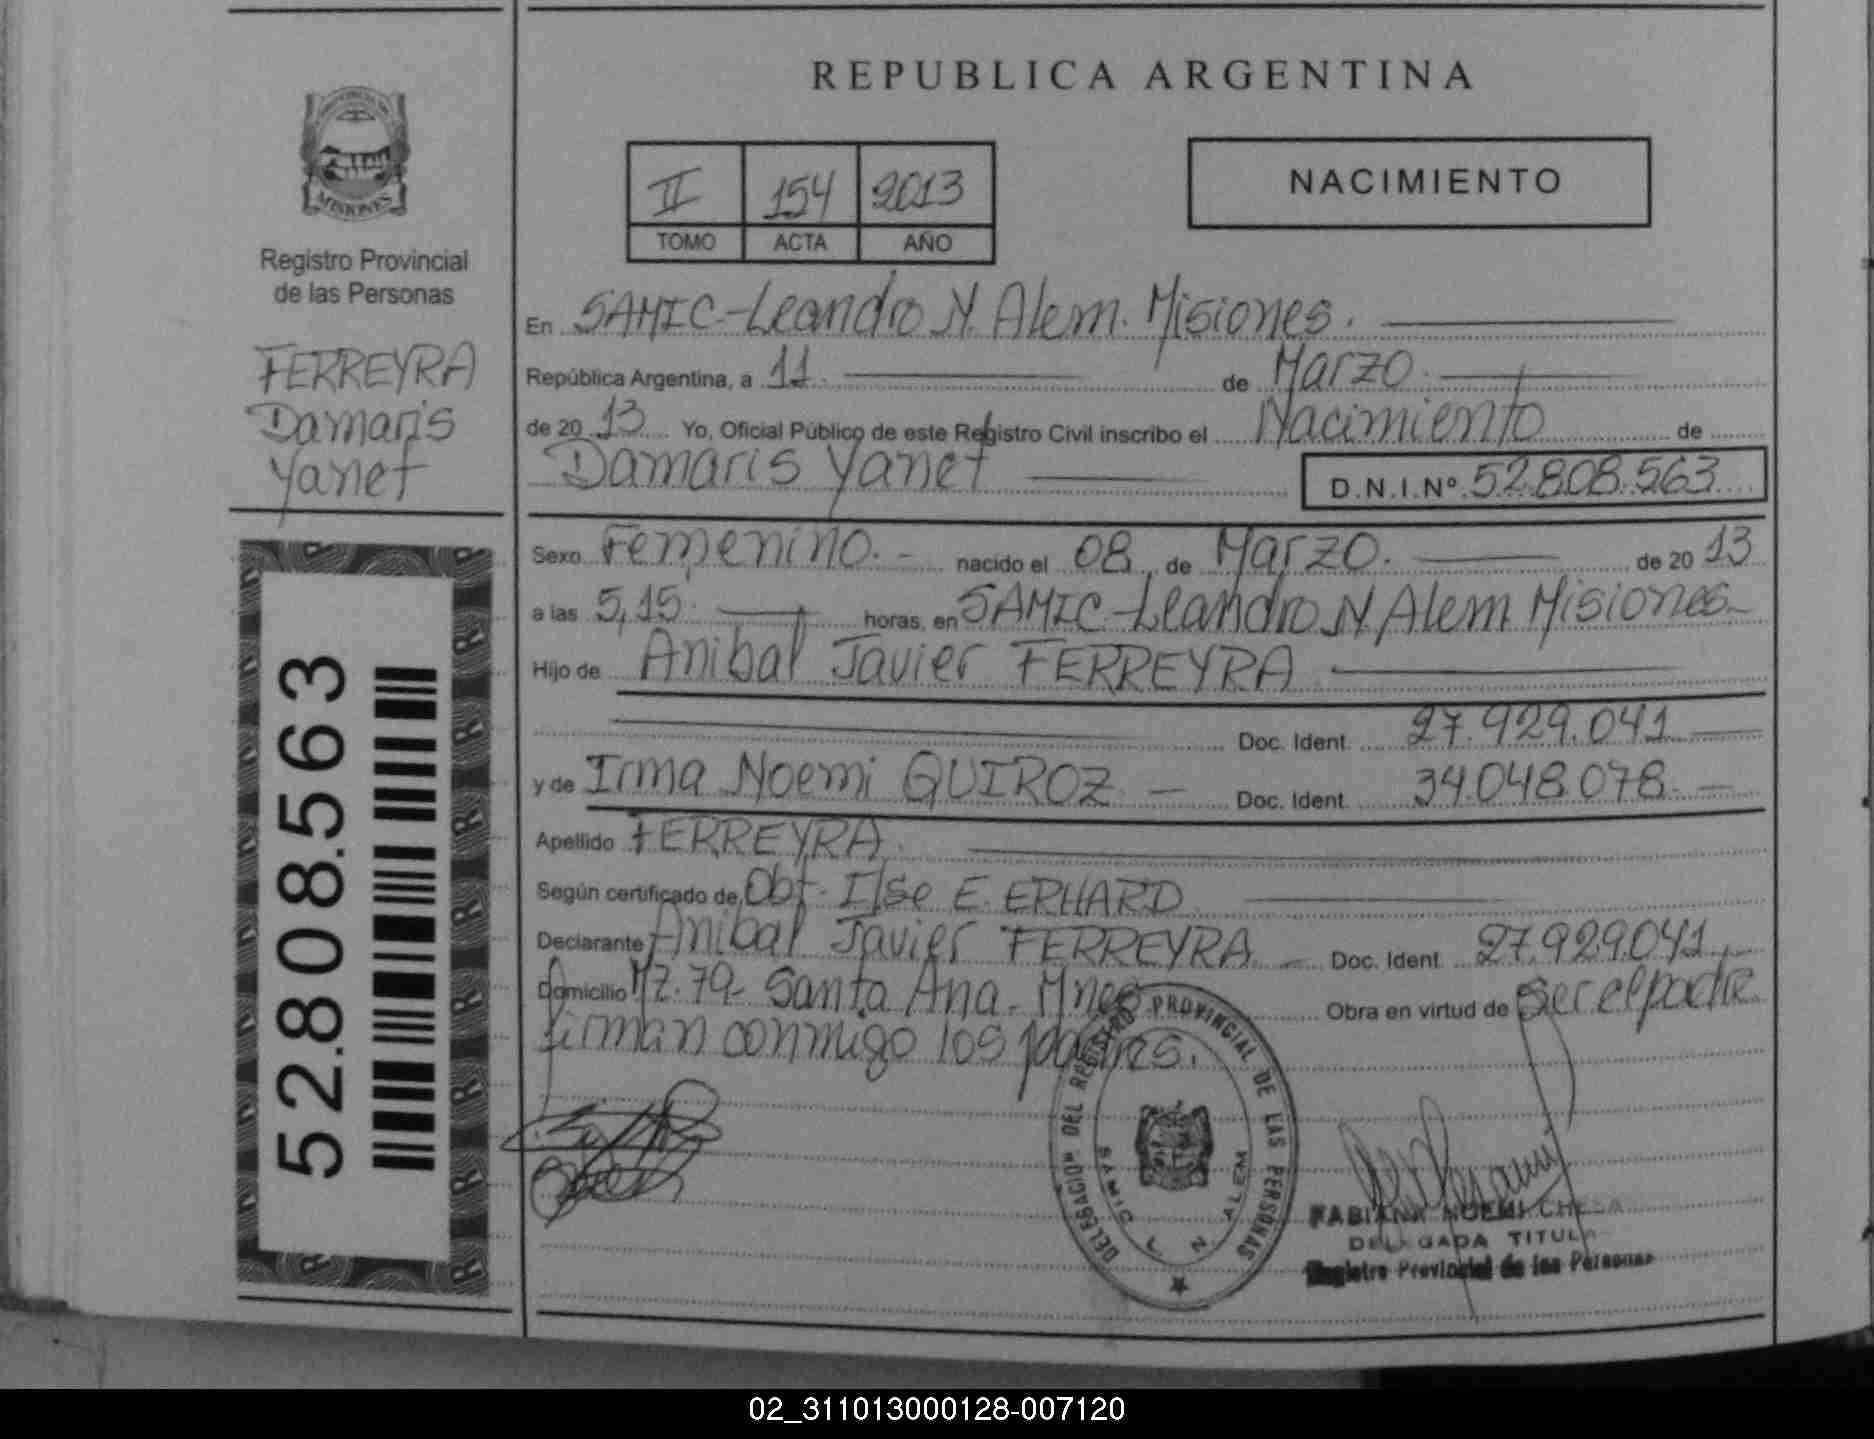 REPUBLICA ARGENTINA
PROVINCIA DE
MISIONES
Registro Provincial
de las Personas
FERREYRA
Damaris
Yanet
52.808.563
II 154 2013
TOMO ACTA AÑO
NACIMIENTO
En SAMIC-Leandro N. Alem. Misiones.
República Argentina, a 11. de Marzo.
de 20 13 Yo, Oficial Público de este Registro Civil inscribo el Nacimiento de
Damaris Yanet D.N.I.Nº. 52.808.563
Sexo Femenino.- nacido el 08 de Marzo. de 20 13
a las 5,15. horas, en SAMIC-Leandro N. Alem Misiones-
Hijo de Anibal Javier FERREYRA
Doc. Ident. 27.929.041
y de Irma Noemi QUIROZ - Doc. Ident. 34.048.078.-
Apellido FERREYRA.
Según certificado de Obt. Ilse E. ERHARD
Declarante Anibal Javier FERREYRA - Doc. Ident. 27.929.041,-
Domicilio MZ.79- Santa Ana- Mnes Obra en virtud de ser el padre
firman conmigo los padres.
DELEGACION DEL REGISTRO PROVINCIAL DE LAS PERSONAS
SAMIC L. N. ALEM
FABIANA NOEMI CHESA
DELEGADA TITULAR
Registro Provincial de las Personas
02_311013000128-007120